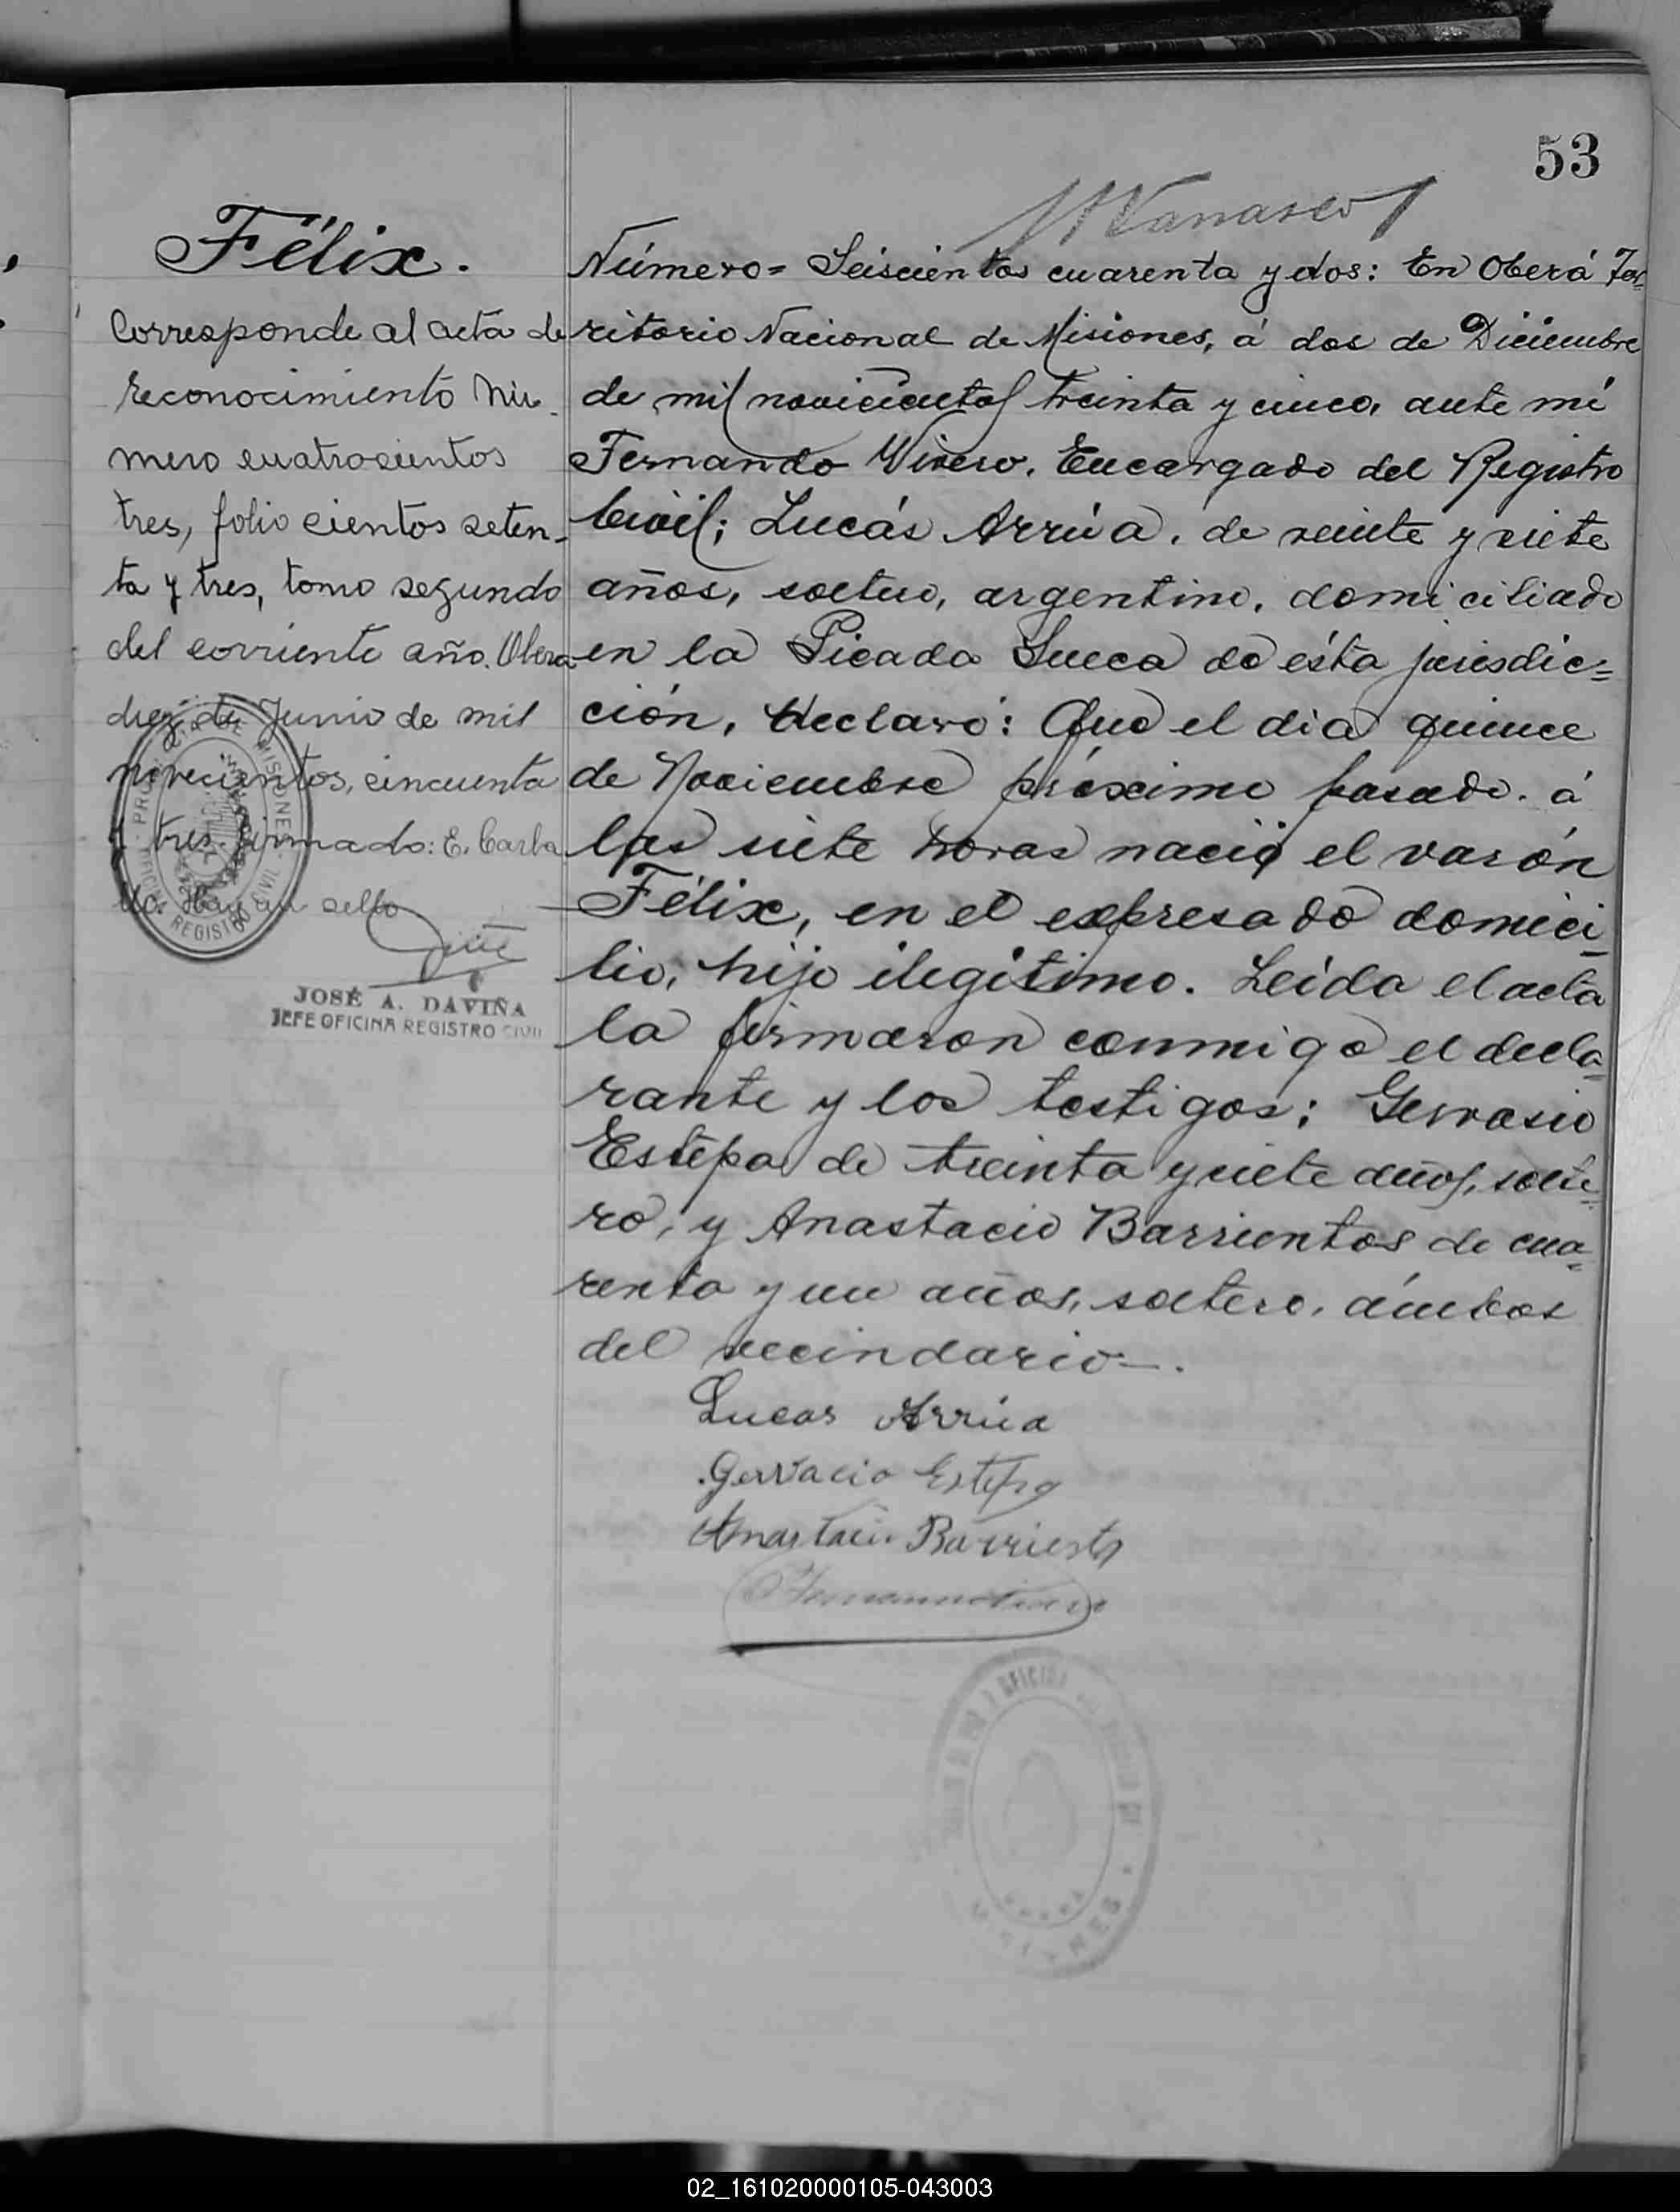 53
Félix.
Corresponde al acta de
reconocimiento Nú-
mero cuatrocientos
tres, folio cientos seten-
ta y tres, tomo segundo
del corriente año. Obera
diez de Junio de mil
novecientos, cincuenta
y tres. firmado: E. Carba
llo. Hay un sello
JOSÉ A. DAVIÑA
JEFE OFICINA REGISTRO CIVIL
Número= Seiscientos cuarenta y dos: En Oberá Ter-
ritorio Nacional de Misiones, á dos de Diciembre
de mil novicientos treinta y cinco, ante mí
Fernando Vivero, Encargado del Registro
Civil; Lucás Arrúa, de veinte y siete
años, soltero, argentino, domiciliado
en la Picada Sueca de ésta jurisdic=
ción, declaró: Que el dia quince
de Noviembre próximo pasado, á
las siete horas nació el varón
Félix, en el expresado domici-
lio, hijo ilegítimo. Leida el acta
la firmaron conmigo el decla-
rante y los testigos; Gervasio
Estepa de treinta y siete años, solte-
ro, y Anastacio Barrientos de cua=
renta y un años, soltero, ámbos
del vecindario—.
Lucas Arrúa
Gervacio Estepa
Anastacio Barrientos
02_161020000105-043003